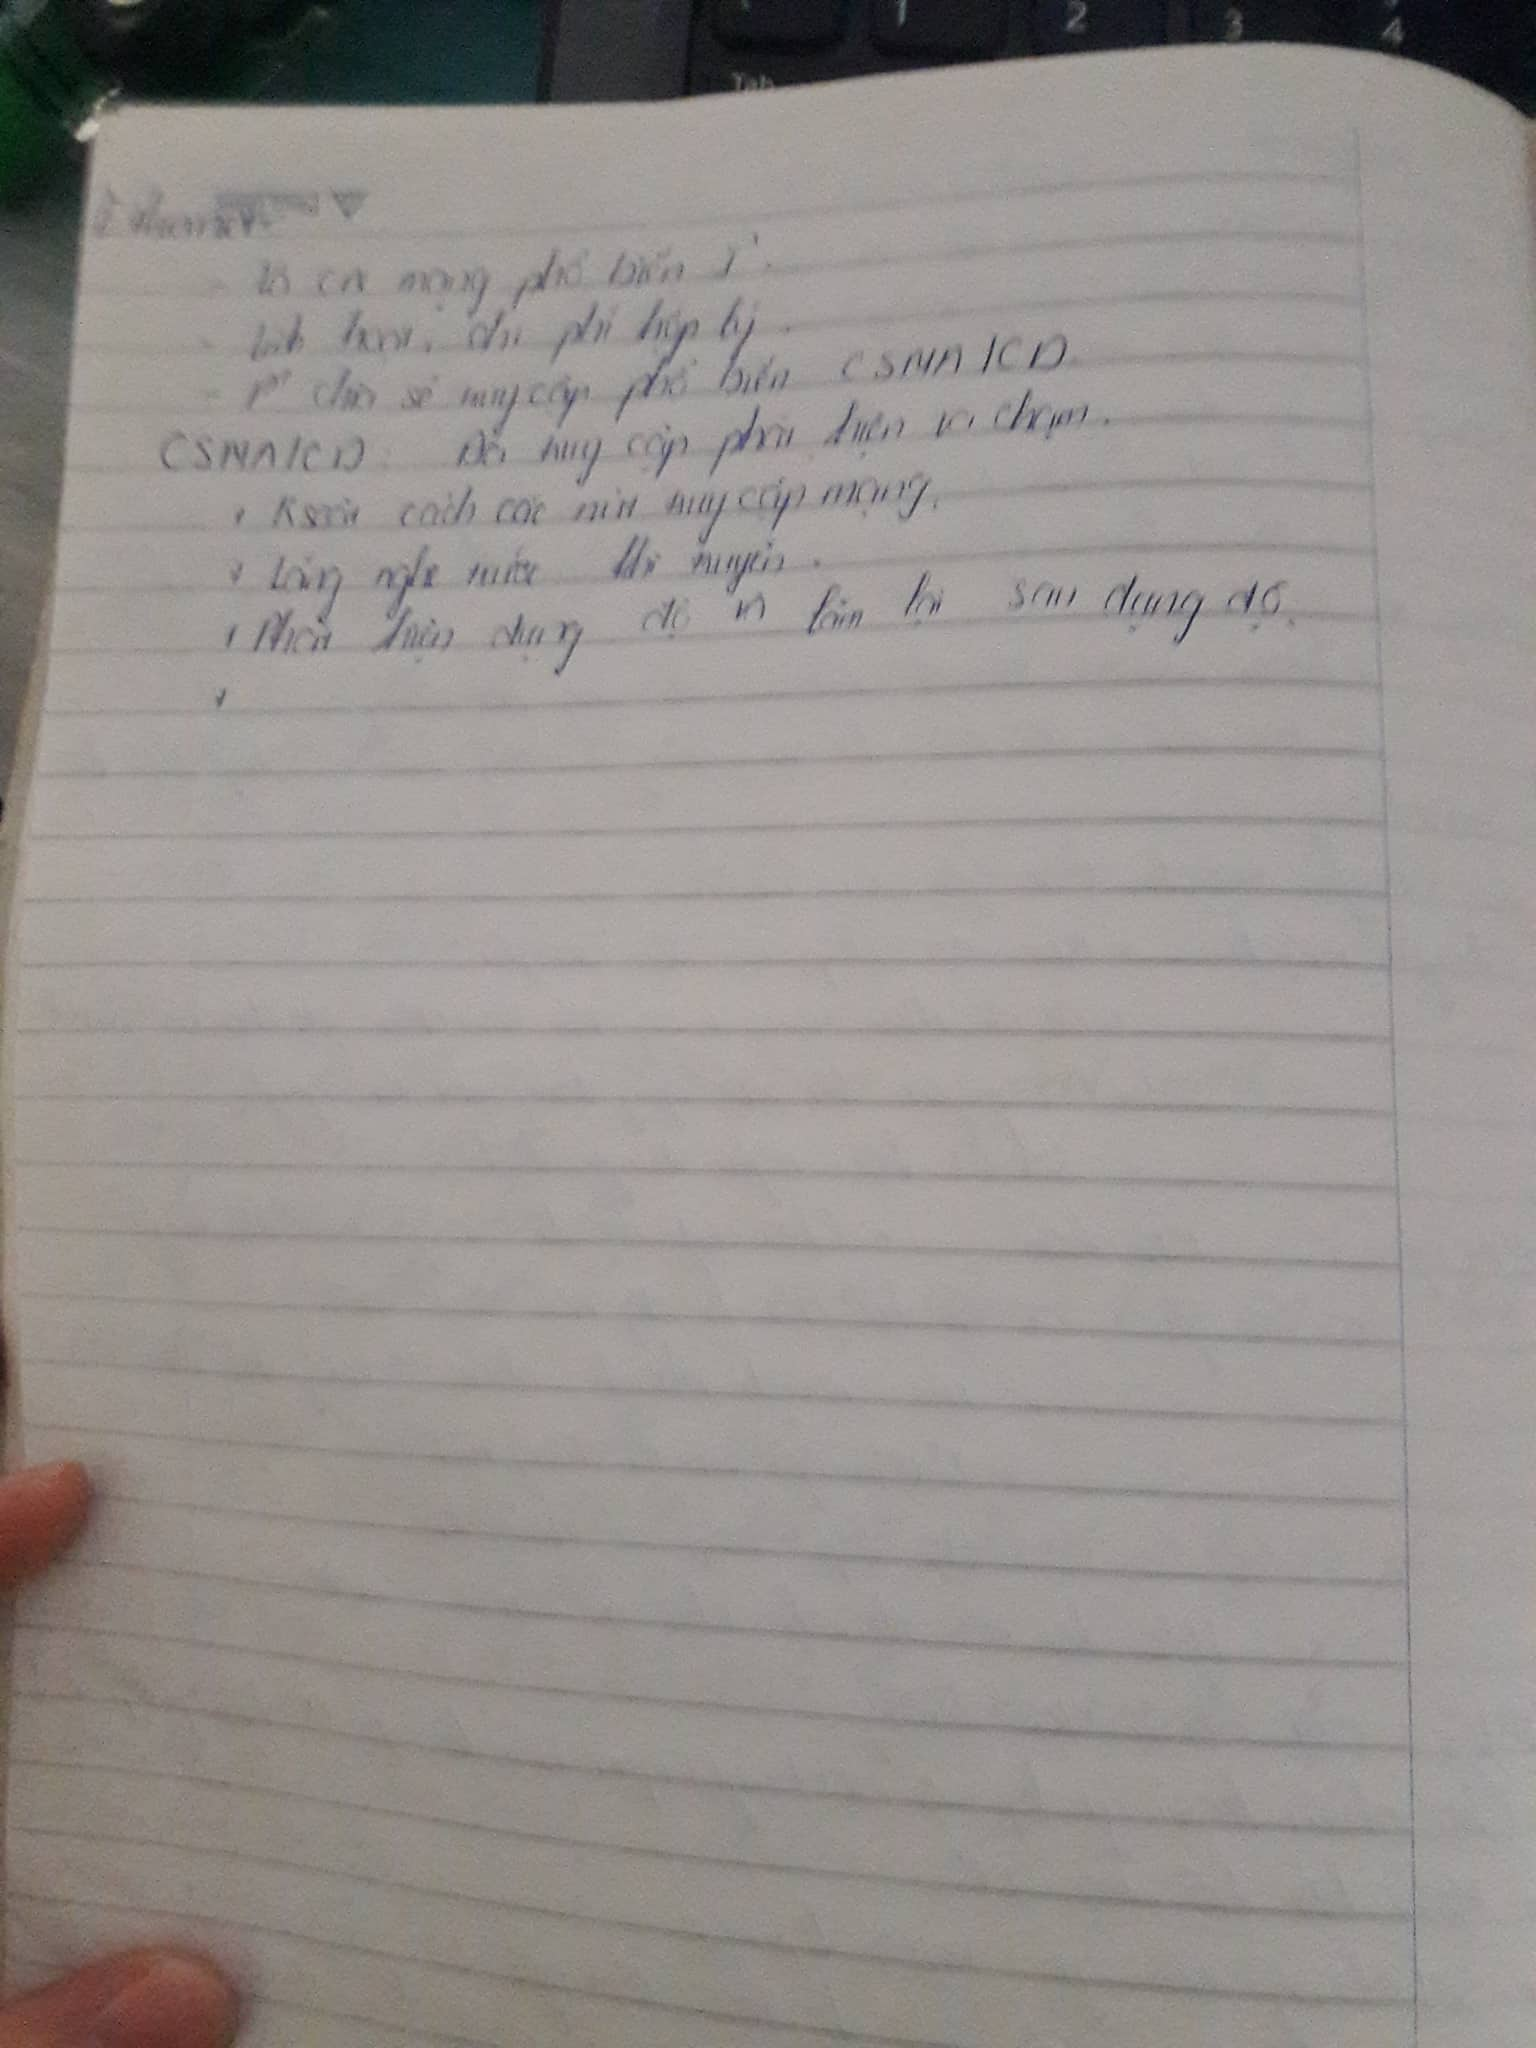 1
2
3
4
Tab
Ethernet:
- Là CN mạng phổ biến 1.
- Linh hoạt, chi phí hợp lý.
- P² chia sẻ truy cập phổ biến CSMA/CD.
CSMA/CD: Đa truy cập phát hiện va chạm.
+ Ksoát cách các nút truy cập mạng.
+ Lắng nghe trước khi truyền.
+ Phát hiện đụng độ và làm lại sau đụng độ.
+